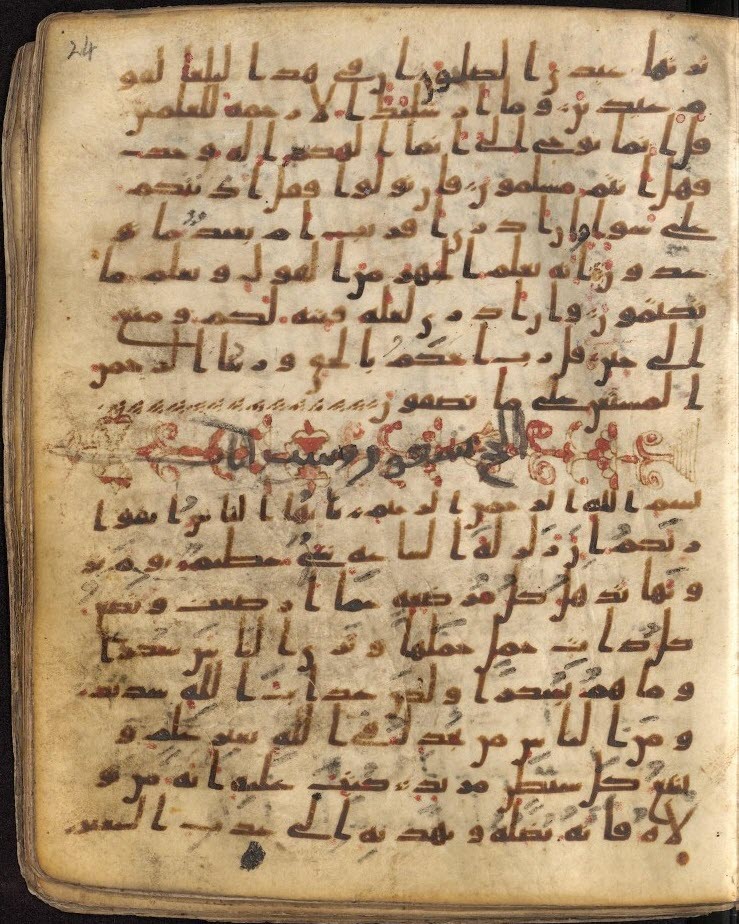 24
يرثها عبدي الصلحون ان في هذا لبلغا لقو
م عبدين وما ارسلنك الا رحمة للعلمين
قل انما يوحى الي انما الهكم اله وحد
فهل انتم مسلمون فان تولوا فقل اذنتكم
على سوا وان ادري اقريب ام بعيد ما تو
عدون انه يعلم الجهر من القول ويعلم ما
تكتمون وان ادري لعله فتنة لكم ومتع
الى حين قل رب احكم بالحق وربنا الرحمن
المستعن على ما تصفون
الحج سبعون وست ايات
بسم الله الرحمن الرحيم يايها الناس اتقوا
ربكم ان زلزلة الساعة شي عظيم يوم تر
ونها تذهل كل مرضعة عما ارضعت وتضع
كل ذات حمل حملها وترى الناس سكرى
وما هم بسكرى ولكن عذاب الله شديد
ومن الناس من يجدل في الله بغير علم و
يتبع كل شيطن مريد كتب عليه انه من تو
لاه فانه يضله ويهديه الى عذاب السعير